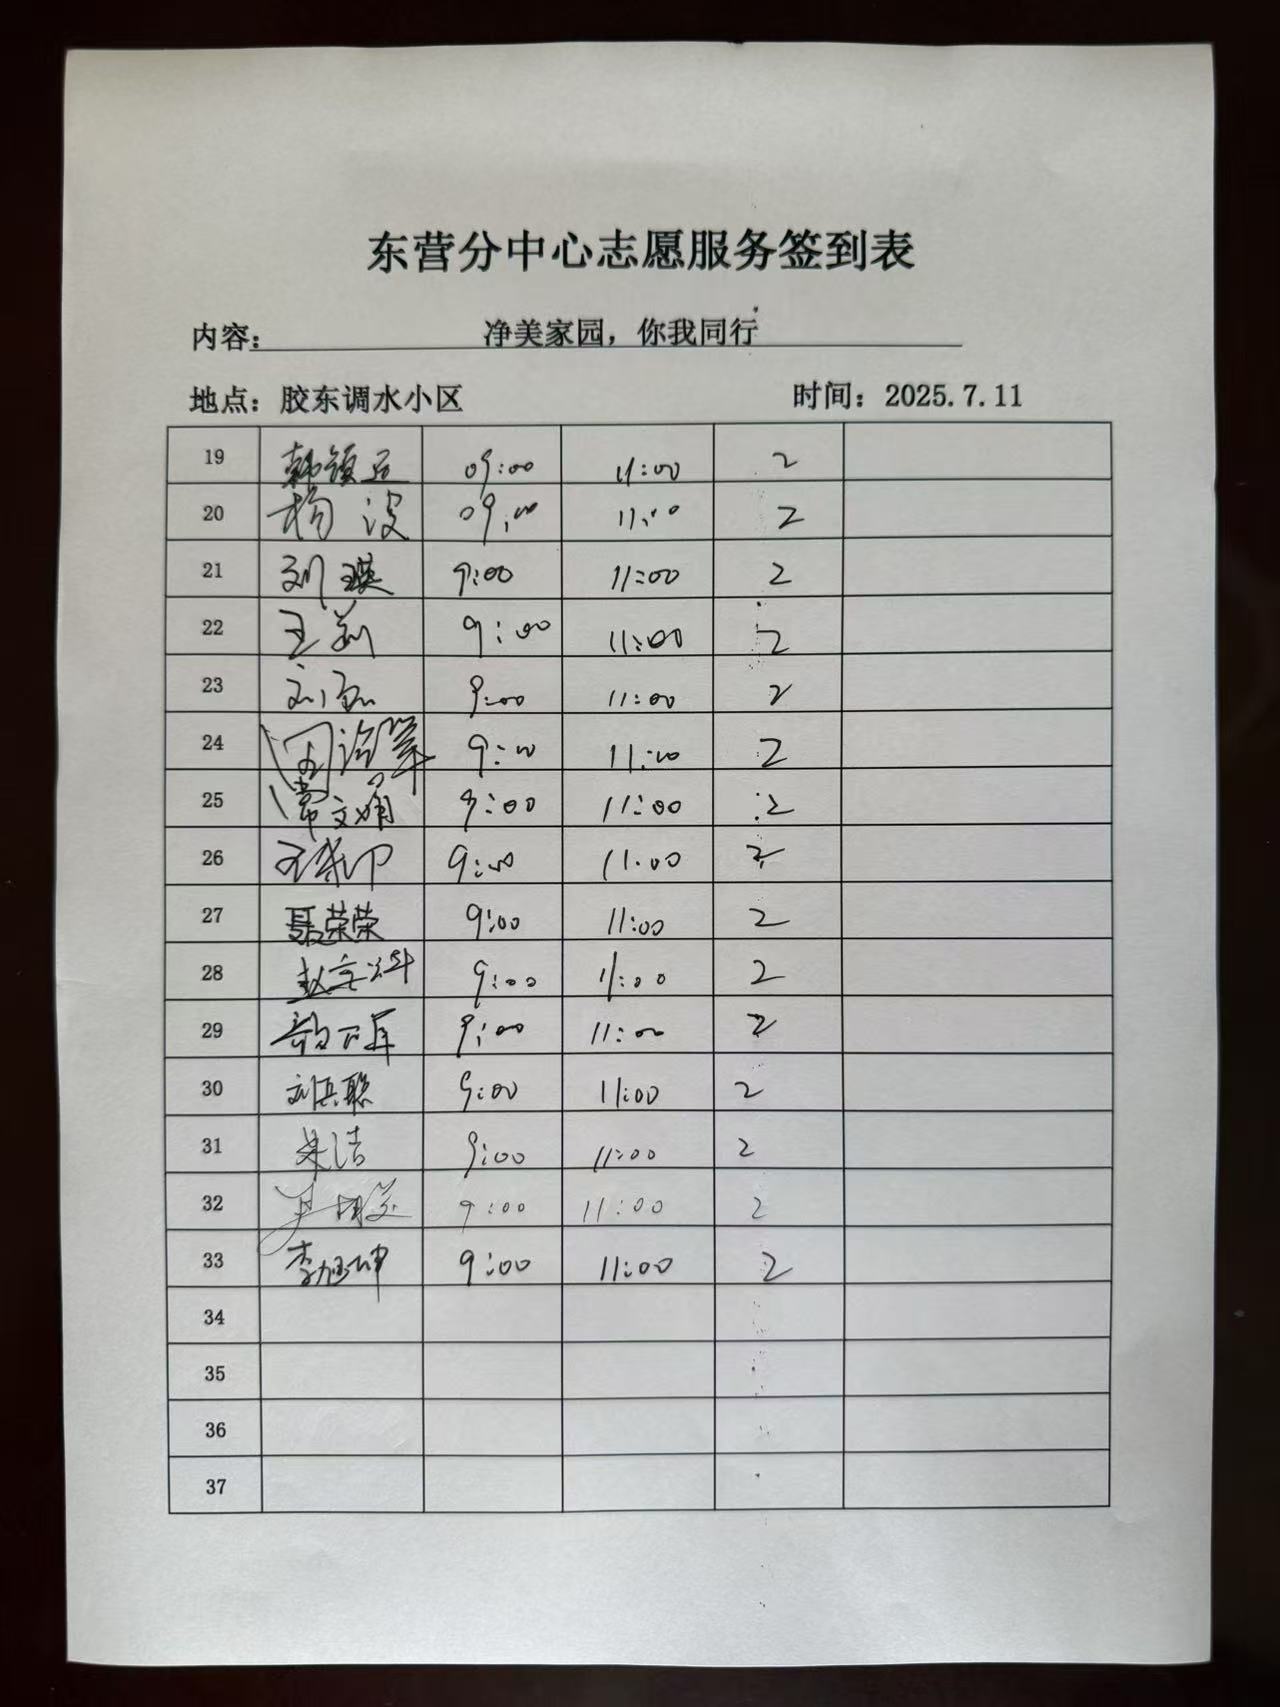 东营分中心志愿服务签到表
内容： 净美家园，你我同行
地点：胶东调水小区 时间：2025.7.11
19 09:00 11:00 2
20 杨波 09:00 11:00 2
21 刘瑛 9:00 11:00 2
22 王莉 9:00 11:00 2
23 9:00 11:00 2
24 9:00 11:00 2
25 常文娟 9:00 11:00 2
26 9:00 11:00 2
27 聂荣荣 9:00 11:00 2
28 9:00 11:00 2
29 9:00 11:00 2
30 刘兵聪 9:00 11:00 2
31 朱洁 9:00 11:00 2
32 9:00 11:00 2
33 李旭坤 9:00 11:00 2
34
35
36
37